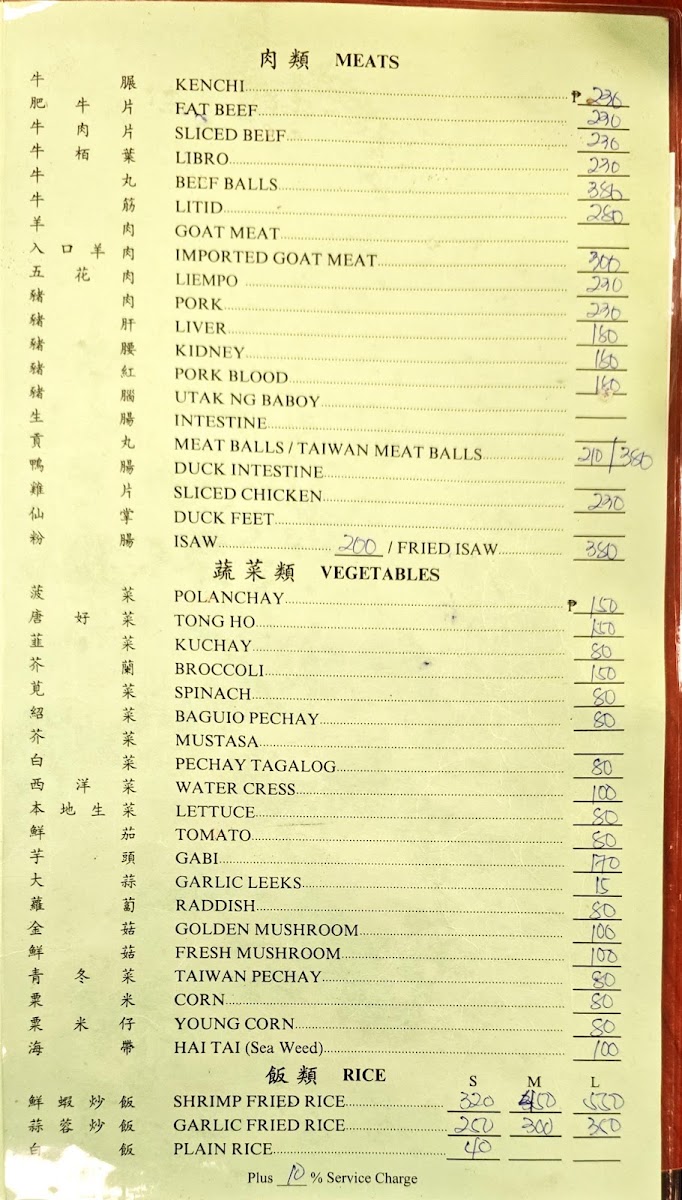 肉類 MEATS
牛𦟌 KENCHI ₱ 230
肥牛片 FAT BEEF 230
牛肉片 SLICED BEEF 230
牛栢葉 LIBRO 230
牛丸 BEEF BALLS 380
牛筋 LITID 280
羊肉 GOAT MEAT
入口羊肉 IMPORTED GOAT MEAT 300
五花肉 LIEMPO 230
豬肉 PORK 230
豬肝 LIVER 180
豬腰 KIDNEY 180
豬紅 PORK BLOOD 180
豬腦 UTAK NG BABOY
生腸 INTESTINE
貢丸 MEAT BALLS / TAIWAN MEAT BALLS 210/380
鴨腸 DUCK INTESTINE
雞片 SLICED CHICKEN 230
仙掌 DUCK FEET
粉腸 ISAW 200 / FRIED ISAW 380
蔬菜類 VEGETABLES
菠菜 POLANCHAY ₱ 150
唐好菜 TONG HO 150
韮菜 KUCHAY 80
芥蘭 BROCCOLI 150
莧菜 SPINACH 80
紹菜 BAGUIO PECHAY 80
芥菜 MUSTASA
白菜 PECHAY TAGALOG 80
西洋菜 WATER CRESS 100
本地生菜 LETTUCE 80
鮮茄 TOMATO 80
芋頭 GABI 170
大蒜 GARLIC LEEKS 15
蘿蔔 RADDISH 80
金菇 GOLDEN MUSHROOM 100
鮮菇 FRESH MUSHROOM 100
青冬菜 TAIWAN PECHAY 80
粟米 CORN 80
粟米仔 YOUNG CORN 80
海帶 HAI TAI (Sea Weed) 100
飯類 RICE S M L
鮮蝦炒飯 SHRIMP FRIED RICE 320 450 550
蒜蓉炒飯 GARLIC FRIED RICE 250 300 350
白飯 PLAIN RICE 40
Plus 10 % Service Charge